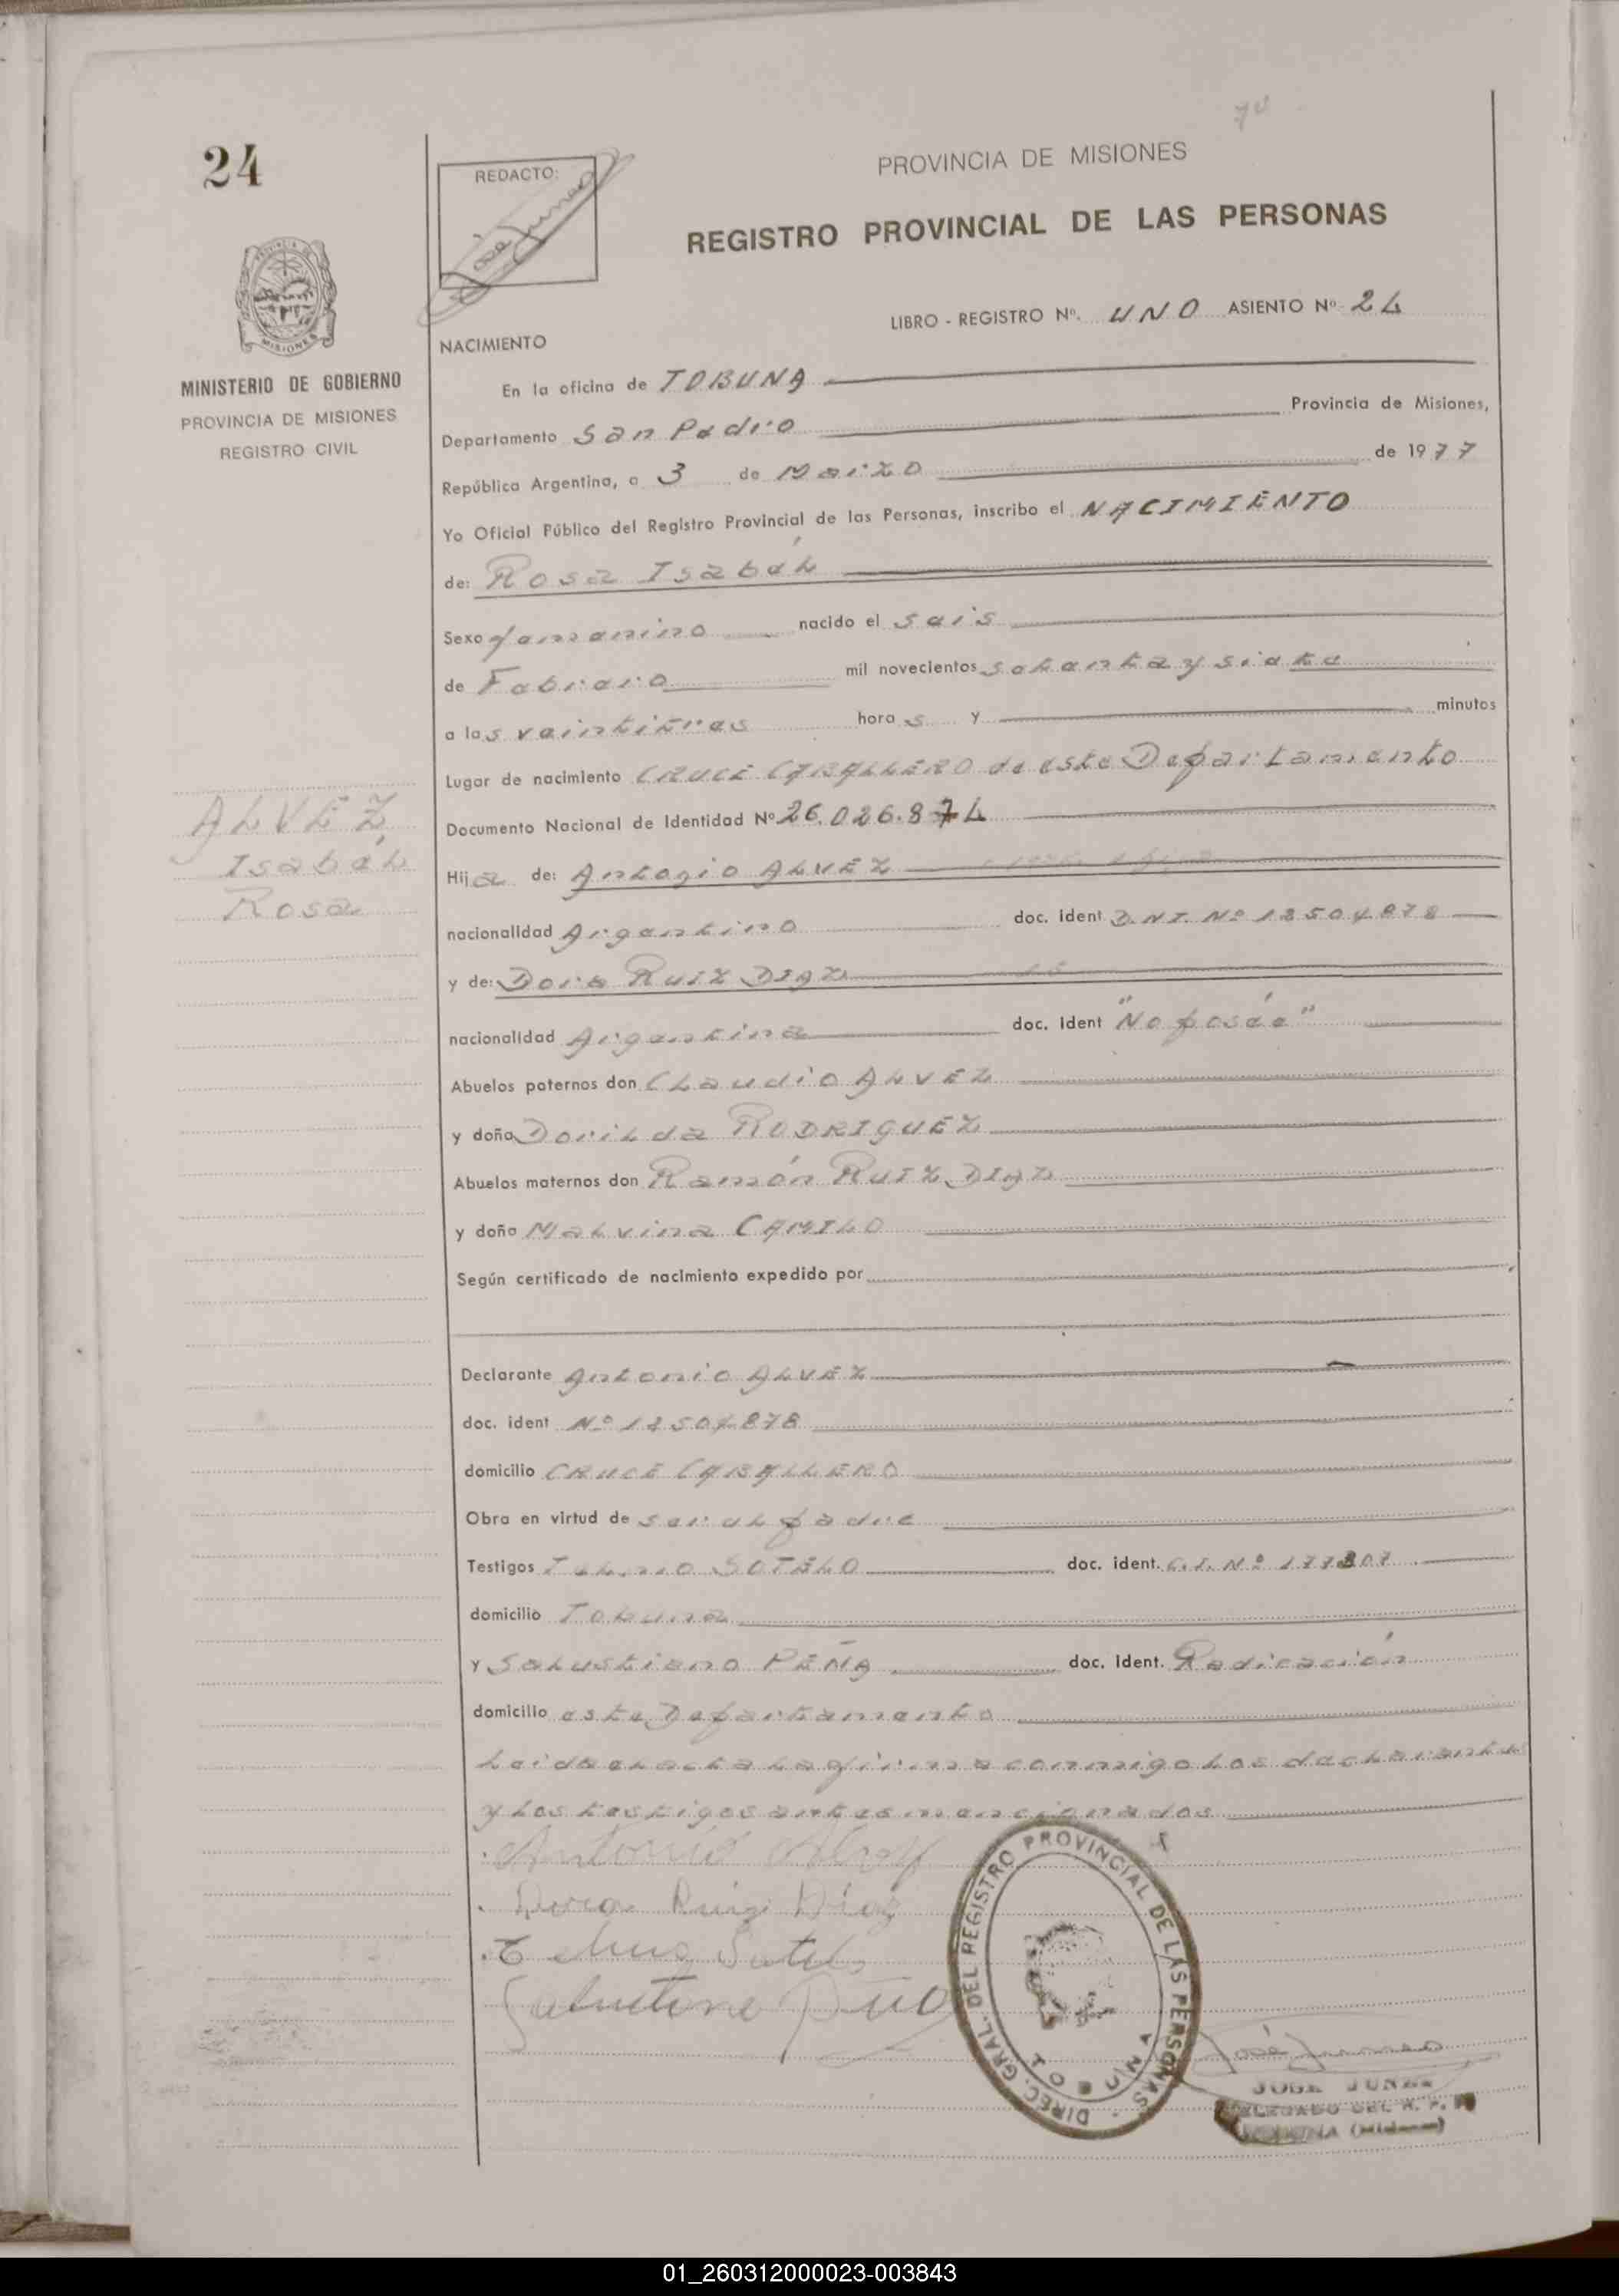 24
REDACTO:
PROVINCIA DE MISIONES
REGISTRO PROVINCIAL DE LAS PERSONAS
MISIONES
MINISTERIO DE GOBIERNO
PROVINCIA DE MISIONES
REGISTRO CIVIL
LIBRO - REGISTRO Nº. UNO ASIENTO Nº 24
NACIMIENTO
En la oficina de TOBUNA
Departamento San Pedro Provincia de Misiones,
República Argentina, a 3 de Marzo de 1977
Yo Oficial Público del Registro Provincial de las Personas, inscribo el NACIMIENTO
de: Rosa Isabél
Sexo femenino nacido el seis
de Febrero mil novecientos setenta y siete
a las veintitres horas y minutos
Lugar de nacimiento CRUCE CABALLERO de este Departamento
Documento Nacional de Identidad Nº 26.026.874
ALVEZ
Isabél
Rosa
Hija de: Antonio ALVEZ
nacionalidad Argentino doc. ident D.N.I. Nº
y de: Dora RUIZ DIAZ
nacionalidad Argentina doc. ident "No poseé"
Abuelos paternos don Claudio ALVEZ
y doña Dorilda RODRIGUEZ
Abuelos maternos don Ramón RUIZ DIAZ
y doña Malvina CAMILO
Según certificado de nacimiento expedido por
Declarante Antonio ALVEZ
doc. ident Nº
domicilio CRUCE CABALLERO
Obra en virtud de ser el padre
Testigos Telmo SOTELO doc. ident. C.I. Nº
domicilio Tobuna
y Salustiano PEÑA doc. ident. Radicación
domicilio este Departamento
Leida el acta la firma conmigo los declarantes
y los testigos antes mencionados
Antonio Alvez
Dora Ruiz Diaz
Telmo Sotelo
DIREC. GRAL. DEL REGISTRO PROVINCIAL DE LAS PERSONAS
TOBUNA
JOSE
DELEGADO DEL R. P. P.
TOBUNA (Misiones)
01_260312000023-003843